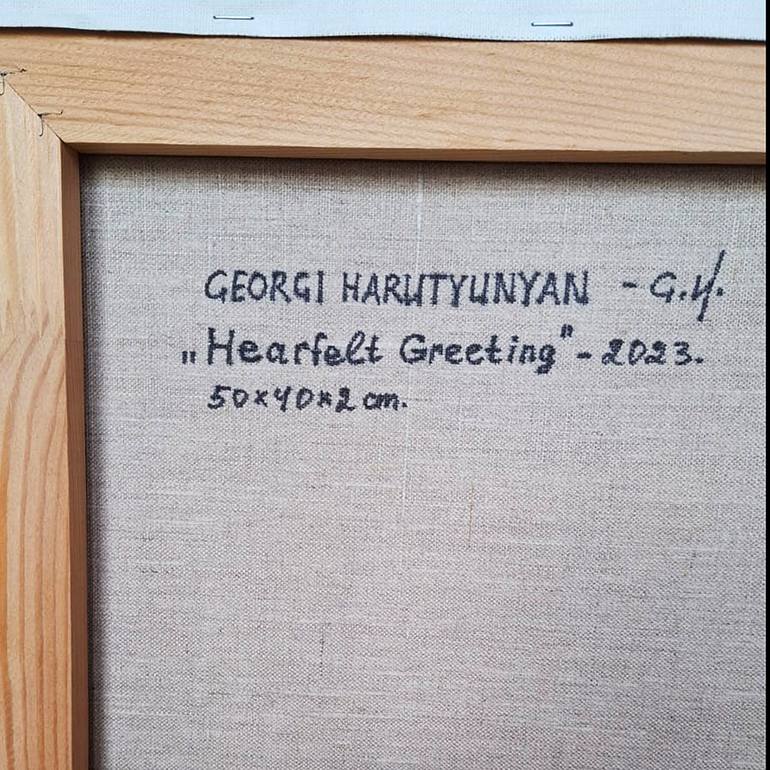 GEORGI HARUTYUNYAN - G.H.
„Hearfelt Greeting" - 2023.
50x40x2 cm.